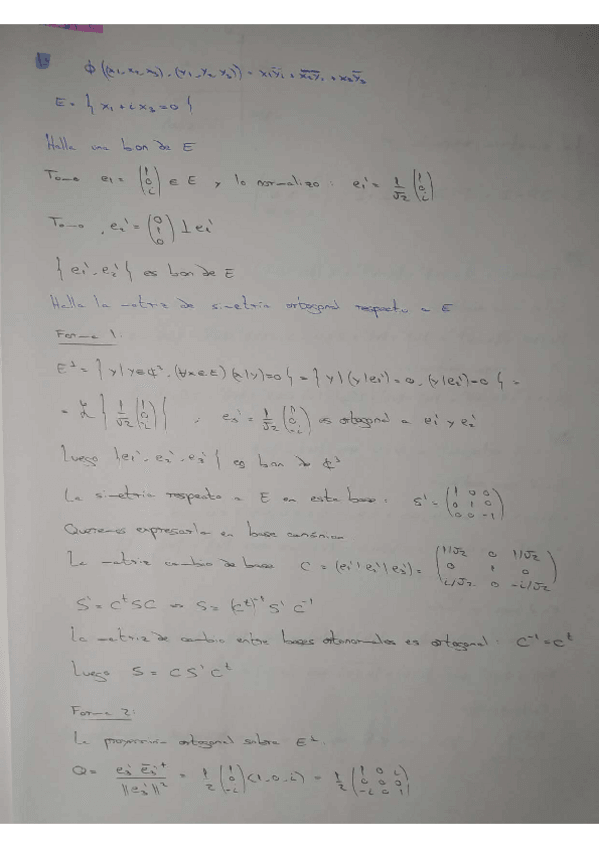 ϕ((x₁, x₂, x₃), (y₁, y₂, y₃)) = x₁ȳ₁ + x₂ȳ₂ + x₃ȳ₃
E = { x₁ + i x₃ = 0 }
Halla una bon de E
Tomo e₁ = (1 0 i) ∈ E y lo normalizo: e₁' = 1/√2 (1 0 i)
Tomo, e₂' = (0 1 0) ⊥ e₁'
{ e₁', e₂' } es bon de E
Halla la matriz de simetría ortogonal respecto a E
Forma 1:
E^⊥ = { y | y ∈ ℂ³, (∀x ∈ E) (x|y) = 0 } = { y | (y|e₁') = 0, (y|e₂') = 0 } =
= { 1/√2 (1 0 -i) }, e₃' = 1/√2 (1 0 -i) es ortogonal a e₁' y e₂'
Luego {e₁', e₂', e₃'} es bon de ℂ³
La simetría respecto a E en esta base: S' = (1 0 0 / 0 1 0 / 0 0 -1)
Queremos expresarla en base canónica
La matriz cambio de base C = (e₁' | e₂' | e₃') = (1/√2 0 1/√2 / 0 1 0 / i/√2 0 -i/√2)
S' = Cᵗ S C ⇒ S = (Cᵗ)⁻¹ S' C⁻¹
La matriz de cambio entre bases ortonormales es ortogonal: C⁻¹ = Cᵗ
Luego S = C S' Cᵗ
Forma 2:
La proyección ortogonal sobre E^⊥:
Q = e₃' ē₃'ᵗ / ||e₃'||² = 1/2 (1 0 -i) (1, 0, i) = 1/2 (1 0 i / 0 0 0 / -i 0 1)